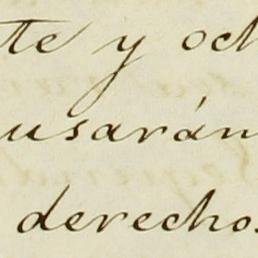 tte y och
usarán
derechos